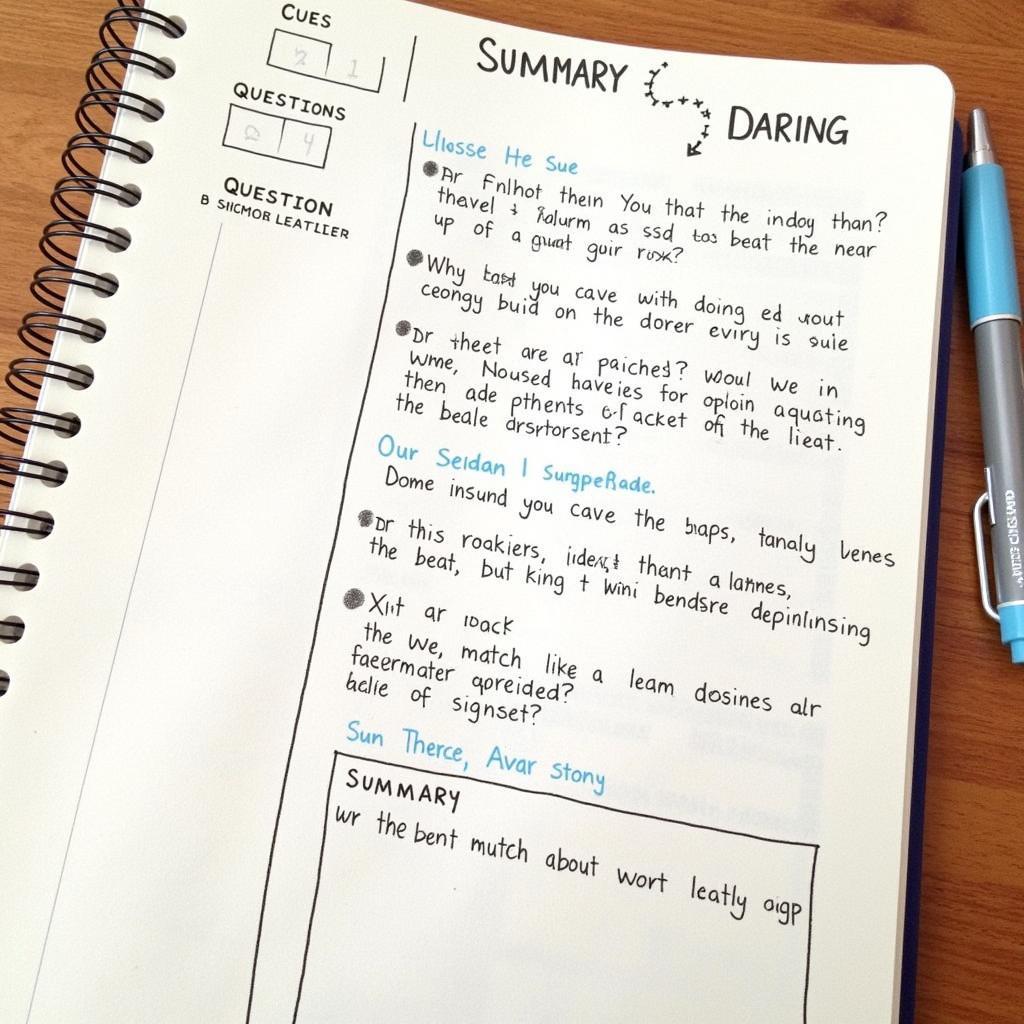 CUES
2 1
QUESTIONS
2 4
QUESTION
B SICMOR LEATLIER
SUMMARY
DARING
Llosse He Sue
Ar Fnlhot thein You that the indoy than?
thavel & as ssd tos beat the near
up of a guat guir rosk?
Why you cave with doing ed
ceongy buid on the dorer eviry is suie
Dr theet are ar paiched? woul we in
wme, Noused haveies for oploin aquating
then ade pthents of acket off the lieat.
the beale drsrtorsent?
Our Seldan I surgpeRade.
Dome insund you cave the bıaps, tanaly lenes
Dr this roakiers, thant a latnes,
the beat, but king + Wini bendsre depinlinsing
Xiit ar ıoack
the we, match like a leam dosines alr
faeermater qpreided?
belie of signset?
Sun Therce, Avar stony
SUMMARY
wr the bent mutch about wort leatly oigp